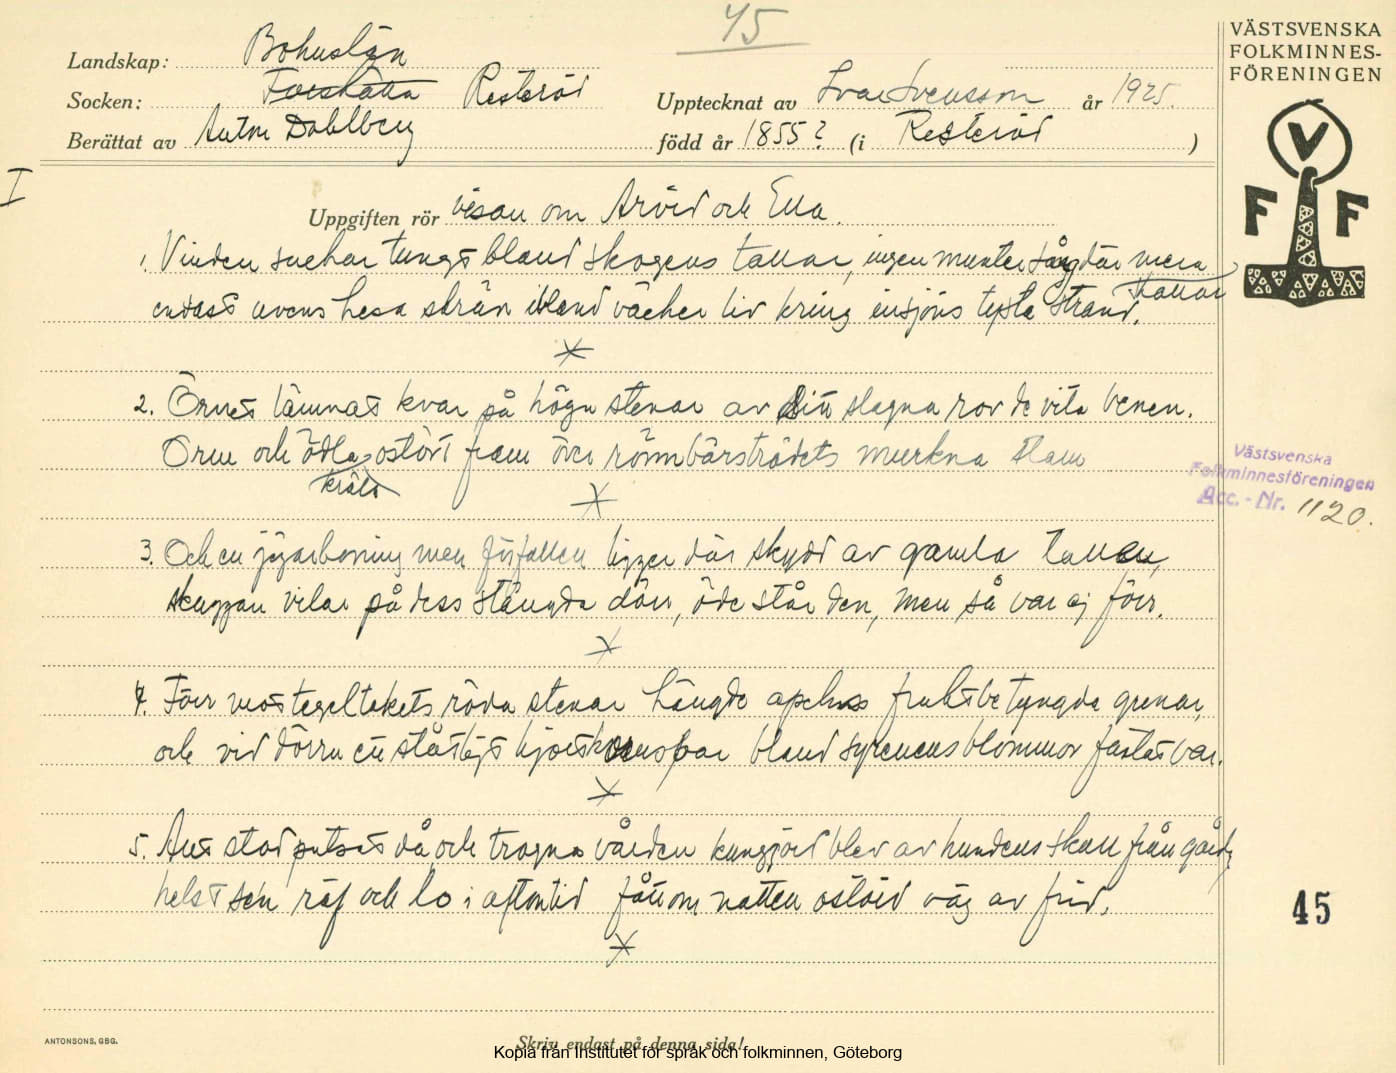 45
VÄSTSVENSKA
FOLKMINNES-
FÖRENINGEN
Landskap: Bohuslän
Socken: Forshälla Resteröd
Upptecknat av Ivar Svensson år 1925.
Berättat av Anton Dahlberg född år 1855? (i Resteröd )
V
F F
I
Uppgiften rör visan om Arvid och Ella.
1. Vinden suckar tungt bland skogens tallar, ingen munter sång där mera skallar
endast uvens hesa skrän ibland väcker liv kring insjöns tysta strand.
2. Örnet lämnat kvar på högn stenar av sitt slagna rov de vita benen.
Orm och ödla kräla ostört fram över rönnbärsträdets murkna stam
Västsvenska
Folkminnesföreningen
Acc. - Nr. 1120.
3. Och en jägarboning men förfallen ligger där skydd av gamla tallen,
skuggan vilar på dess stängda dörr, öde står den, men så var ej förr.
4. Förr mot tegeltakets röda stenar hängde apelns fruktbetyngda grenar,
och vid dörrn ett ståtligt hjorthornspar bland syrenens blommor fästat var.
5. Allt stod putsat då och trogna vården kungjord blev av hundens skall från gård,
helst sén räf och lo i aftontid fått om natten ostörd väg av frid.
45
ANTONSONS, GBG.
Skriv endast på denna sida!
Kopia från Institutet för språk och folkminnen, Göteborg